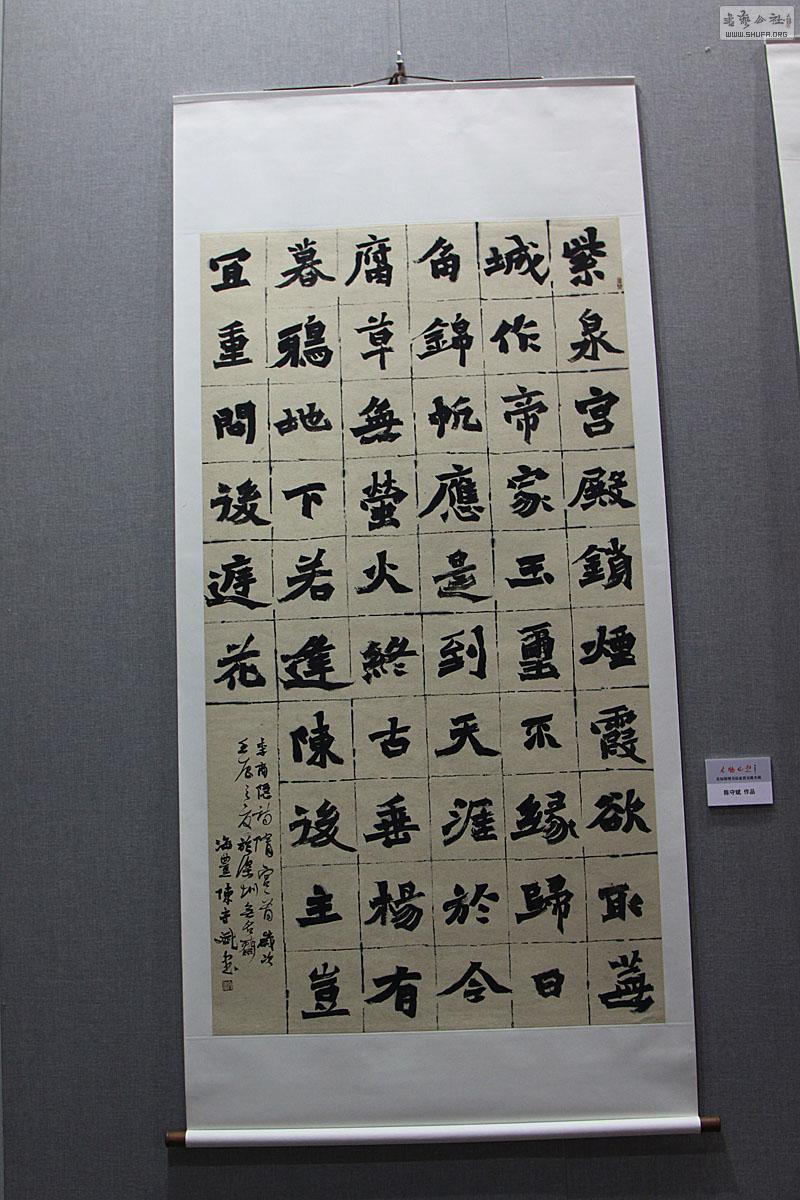 紫泉宮殿鎖煙霞欲取蕪
城作帝家玉璽不緣歸日
角錦帆應是到天涯於今
腐草無螢火終古垂楊有
暮鴉地下若逢陳後主豈
宜重問後庭花
李商隱詩隋宮一首歲次
壬辰之夏於深圳無名
海豐陳守斌書
陈守斌 作品
書藝公社
WWW.SHUFA.ORG